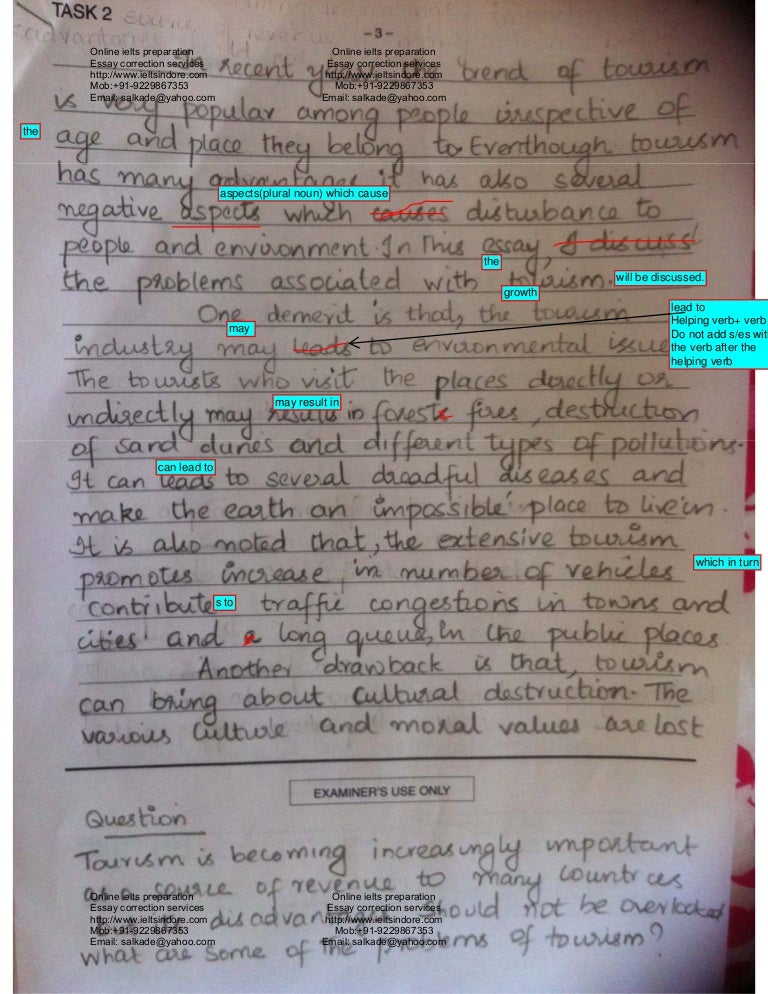 TASK 2
source
- 3 -
Online ielts preparation
Essay correction services
http://www.ieltsindore.com
Mob:+91-9229867353
Email: salkade@yahoo.com
Online ielts preparation
Essay correction services
http://www.ieltsindore.com
Mob:+91-9229867353
Email: salkade@yahoo.com
recent trend of tourism
is very popular among people irrespective of
the
age and place they belong to. Eventhough tourism
has many advantages it has also several
aspects(plural noun) which cause
negative aspects which causes disturbance to
people and environment. In this essay, I discuss
the
the problems associated with tourism.
will be discussed.
growth
One demerit is that, the tourism
lead to
Helping verb+ verb
Do not add s/es wit
the verb after the
helping verb
may
industry may leads to environmental issue
The tourists who visit the places directly or
may result in
indirectly may results in forests fires, destruction
of sand dunes and different types of pollutions.
can lead to
It can leads to several dreadful diseases and
make the earth an 'impossible' place to live in.
It is also noted that, the extensive tourism
which in turn
promotes increase in number of vehicles
contribute s to traffic congestions in towns and
cities and a long queue, in the public places.
Another drawback is that, tourism
can bring about cultural destruction. The
various culture and moral values are lost
EXAMINER'S USE ONLY
Question
Tourism is becoming increasingly important
as a source of revenue to many countries
disadvantages should not be overlooked
what are some of the problems of tourism?
Online ielts preparation
Essay correction services
http://www.ieltsindore.com
Mob:+91-9229867353
Email: salkade@yahoo.com
Online ielts preparation
Essay correction services
http://www.ieltsindore.com
Mob:+91-9229867353
Email: salkade@yahoo.com